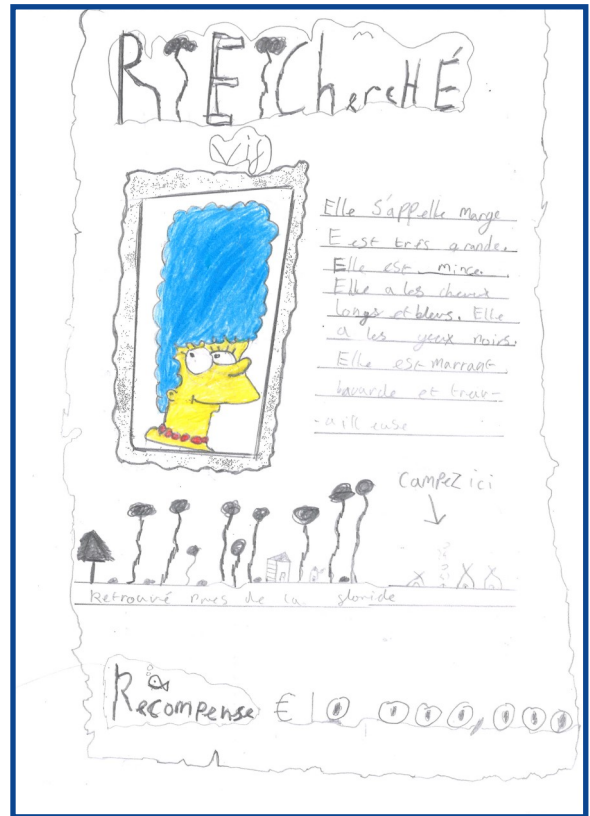 REChercHÉ
Vif
Elle s'appelle Marge
E est très grande.
Elle est mince.
Elle a les cheveux
longs et bleus. Elle
a les yeux noirs.
Elle est marrant
bavarde et trav-
aill euse
CAMPEZ ici
Retrouvé de la
Recompense € 10 000,000